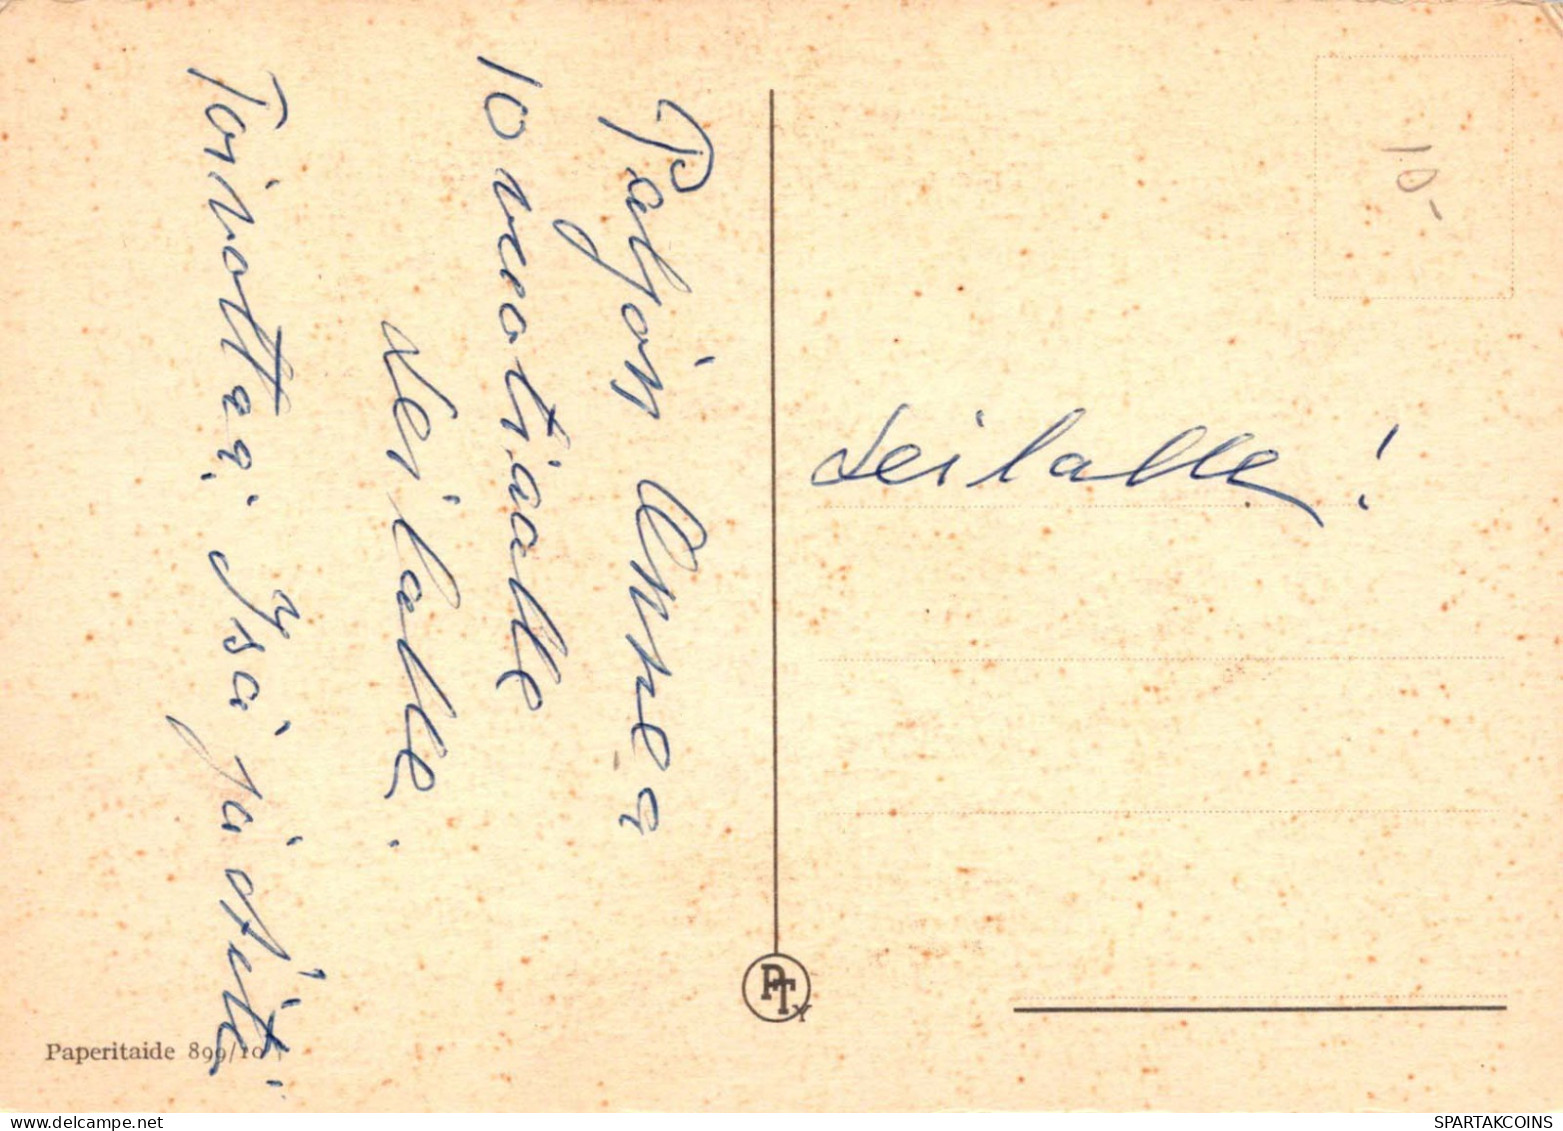 Paljon Onnea
10 vuotiaalle
Leilalle.
Toivottaa; Isä ja Äiti
Leilalle!
10-
PTY
Paperitaide 899/10
www.delcampe.net
SPARTAKCOINS